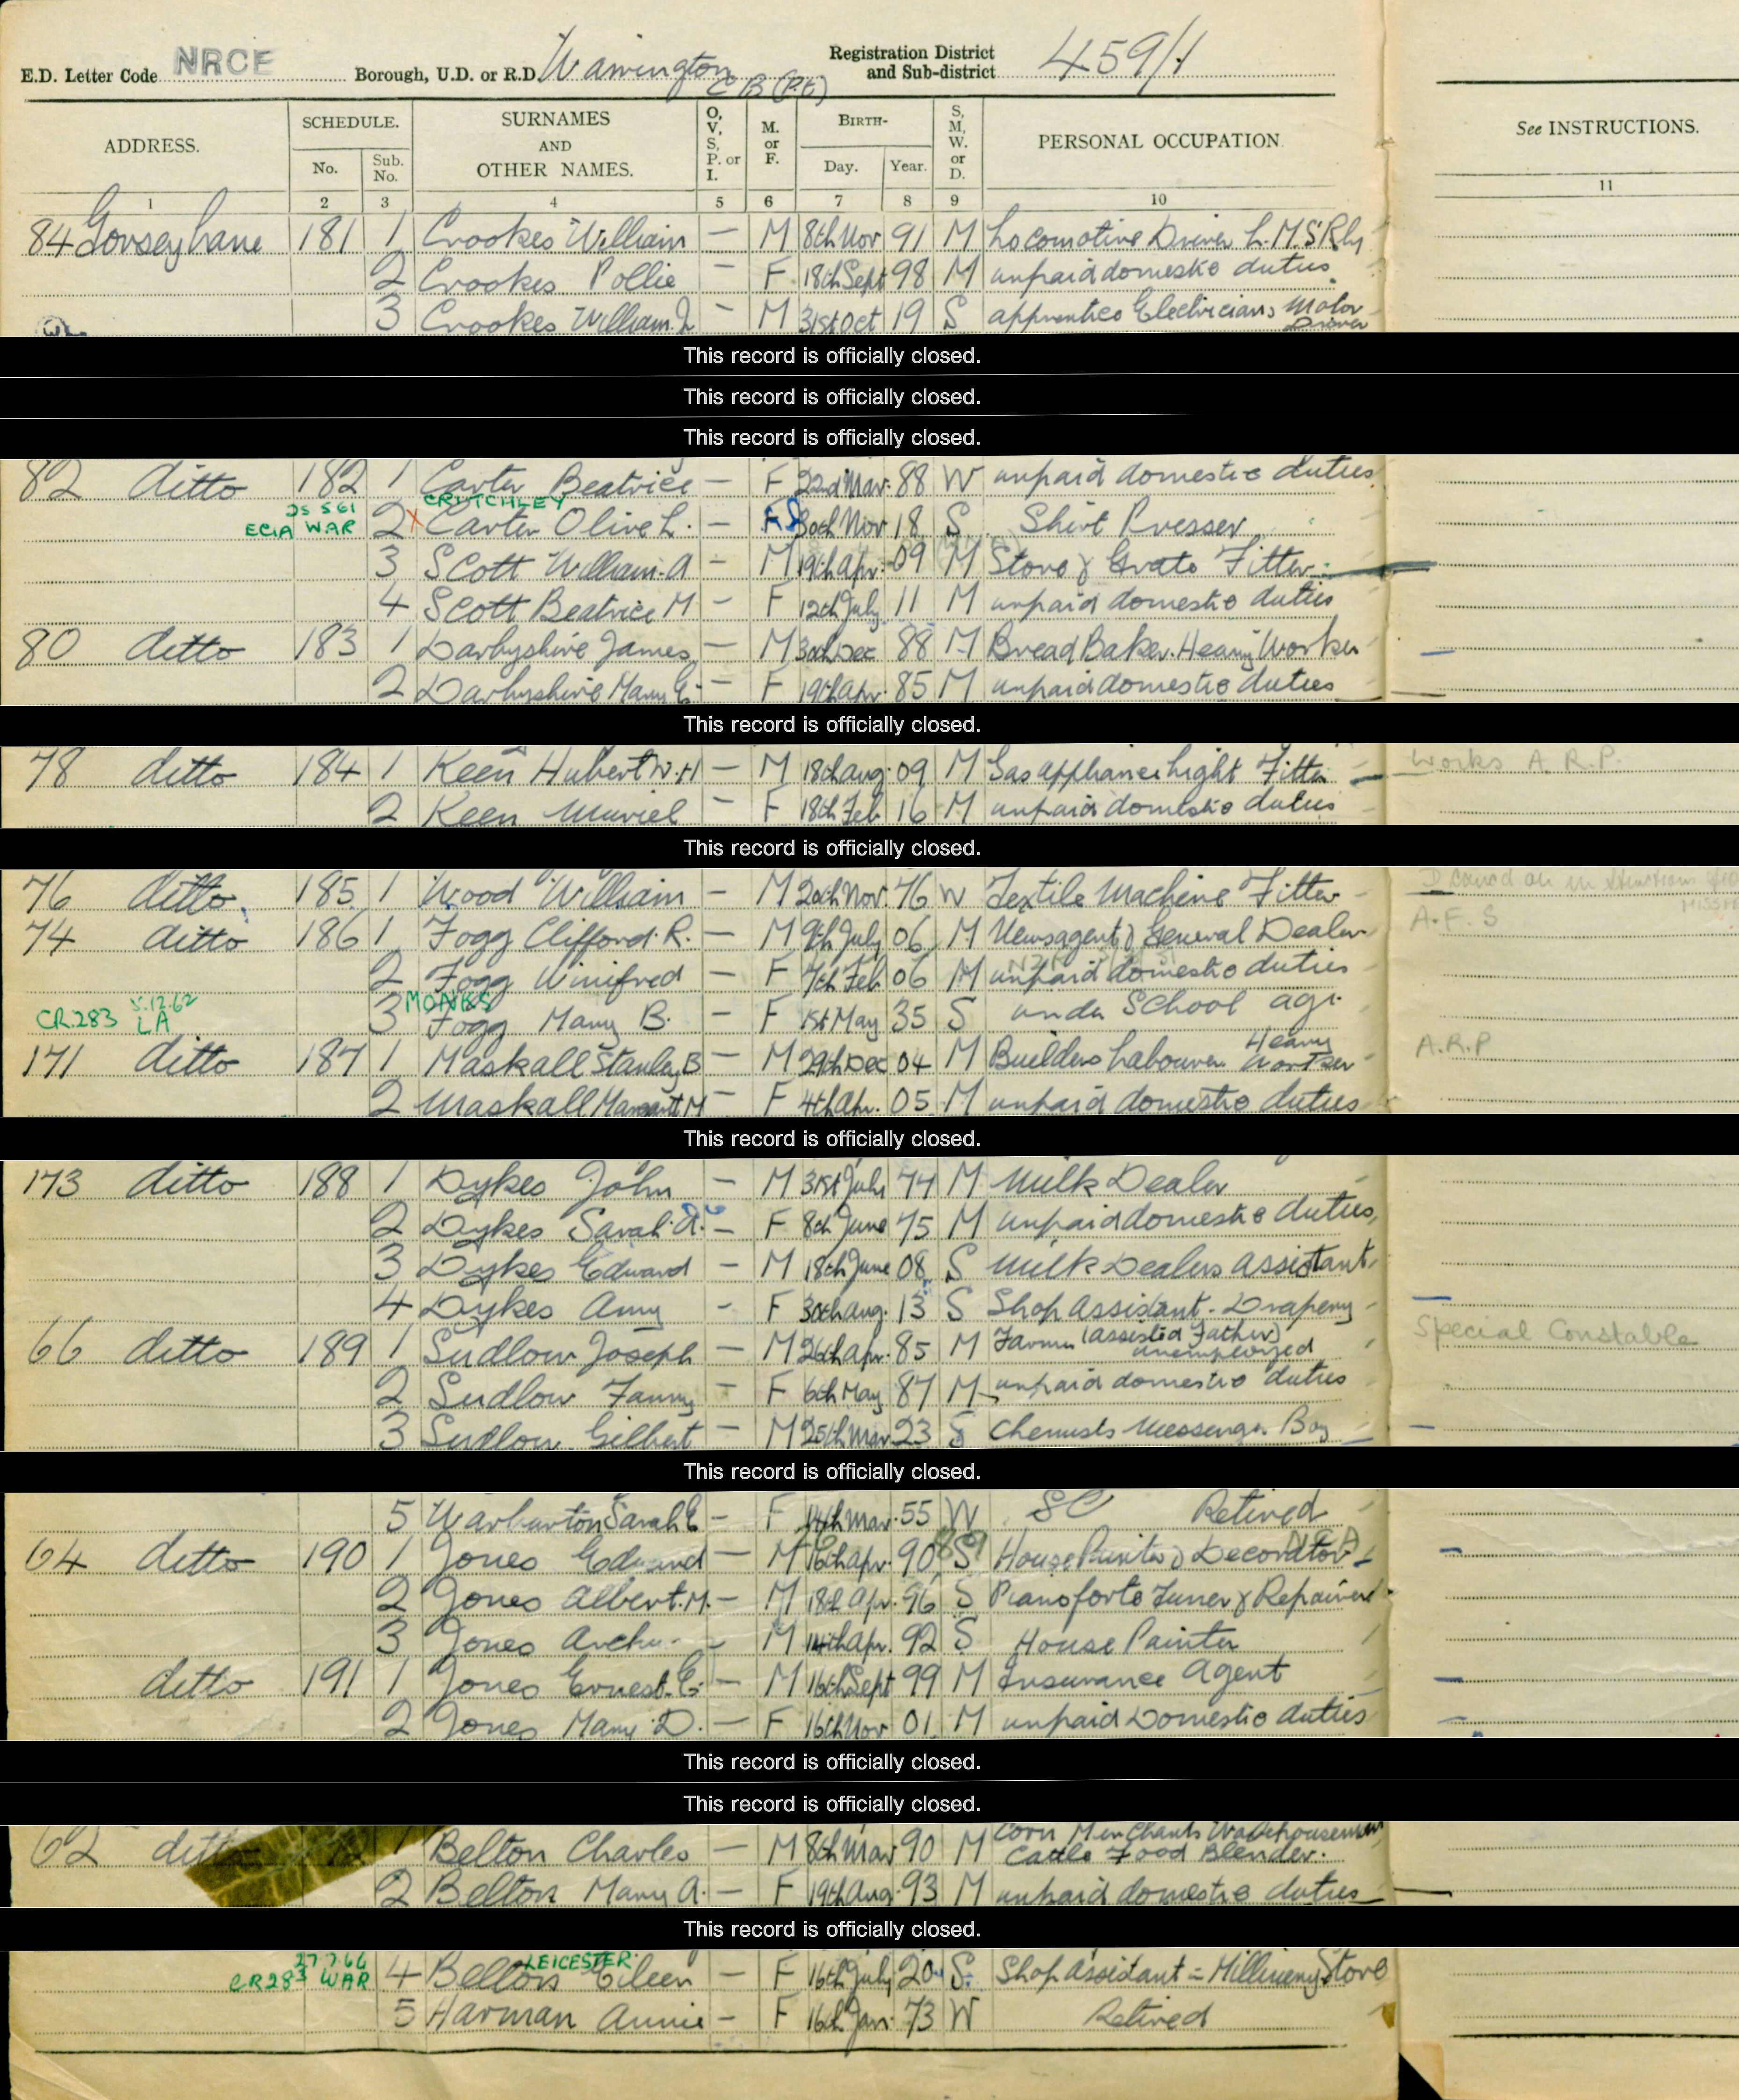 E.D. Letter Code NRCE Borough, U.D. or R.D. Warrington C B (Pt) Registration District and Sub-district 459/1
ADDRESS. SCHEDULE. No. Sub. No. SURNAMES AND OTHER NAMES. O, V, S, P. or I. M. or F. BIRTH- Day. Year. S, M, W. or D. PERSONAL OCCUPATION. See INSTRUCTIONS.
1 2 3 4 5 6 7 8 9 10 11
84 Gorsey Lane 181 1 Crookes William — M 8th Nov 91 M Locomotive Driver L.M.S Rly
2 Crookes Pollie — F 18th Sept 98 M unpaid domestic duties
3 Crookes William J — M 31st Oct 19 S apprentice Electricians Motor Driver
This record is officially closed.
This record is officially closed.
This record is officially closed.
82 ditto 182 1 Carter Beatrice — F 22nd Mar. 88 W unpaid domestic duties
CRUTCHLEY
WAR 2 X Carter Olive L. — F 30th Nov 18 S Shirt Presser
3 Scott William. A — M 19th Apr. 09 M Stove & Grate Fitter
4 Scott Beatrice M — F 12th July 11 M unpaid domestic duties
80 ditto 183 1 Darbyshire James — M 30th Dec 88 M Bread Baker. Heavy Worker
2 Darbyshire Mary E. — F 19th Apr. 85 M unpaid domestic duties
This record is officially closed.
78 ditto 184 1 Keen Hubert W. H — M 18th Aug. 09 M Gas appliance Light Fitter Works A.R.P.
2 Keen Muriel — F 18th Feb 16 M unpaid domestic duties
This record is officially closed.
76 ditto 185 1 Wood William — M 20th Nov. 76 W Textile Machine Fitter
74 ditto 186 1 Fogg Clifford. R. — M 9th July 06 M Newsagent & General Dealer A.F.S
2 Fogg Winifred — F 7th Feb 06 M unpaid domestic duties
CR.283 5.12.62 LA MONKS
3 Fogg Mary B. — F 1st May 35 S under School age
171 ditto 187 1 Maskall Stanley B — M 29th Dec 04 M Builders Labourer Heavy Worker A.R.P
2 Maskall Margaret M — F 4th Apr. 05 M unpaid domestic duties
This record is officially closed.
173 ditto 188 1 Dykes John — M 31st July 74 M Milk Dealer
2 Dykes Sarah. A. — F 8th June 75 M unpaid domestic duties
3 Dykes Edward — M 18th June 08 S Milk Dealers Assistant
4 Dykes Amy - F 30th Aug. 13 S Shop Assistant - Drapery
66 ditto 189 1 Sudlow Joseph — M 26th Apr. 85 M Farmer (assisted Father) unemployed Special Constable
2 Sudlow Fanny — F 6th May 87 M unpaid domestic duties
3 Sudlow Gilbert — M 25th Mar 23 S Chemists Messenger Boy
This record is officially closed.
5 Warburton Sarah E — F 14th Mar. 55 W Retired
64 ditto 190 1 Jones Edward — M 16th Apr. 90 S House Painter & Decorator
2 Jones Albert. M. — M 18th Apr. 96 S Pianoforte Tuner & Repairer
3 Jones Arthur — M 14th Apr. 92 S House Painter
ditto 191 1 Jones Ernest. E. — M 16th Sept 99 M Insurance Agent
2 Jones Mary D. — F 16th Nov 01 M unpaid Domestic duties
This record is officially closed.
This record is officially closed.
62 ditto 1 Belton Charles — M 8th Mar 90 M Corn Merchants Warehouseman Cattle Food Blender.
2 Belton Mary A. — F 19th Aug. 93 M unpaid domestic duties
This record is officially closed.
27.7.66 LEICESTER
CR283 WAR 4 Belton Eileen — F 16th July 20 S. Shop Assistant = Millinery Store
5 Harman Annie — F 16th Jan. 73 W Retired